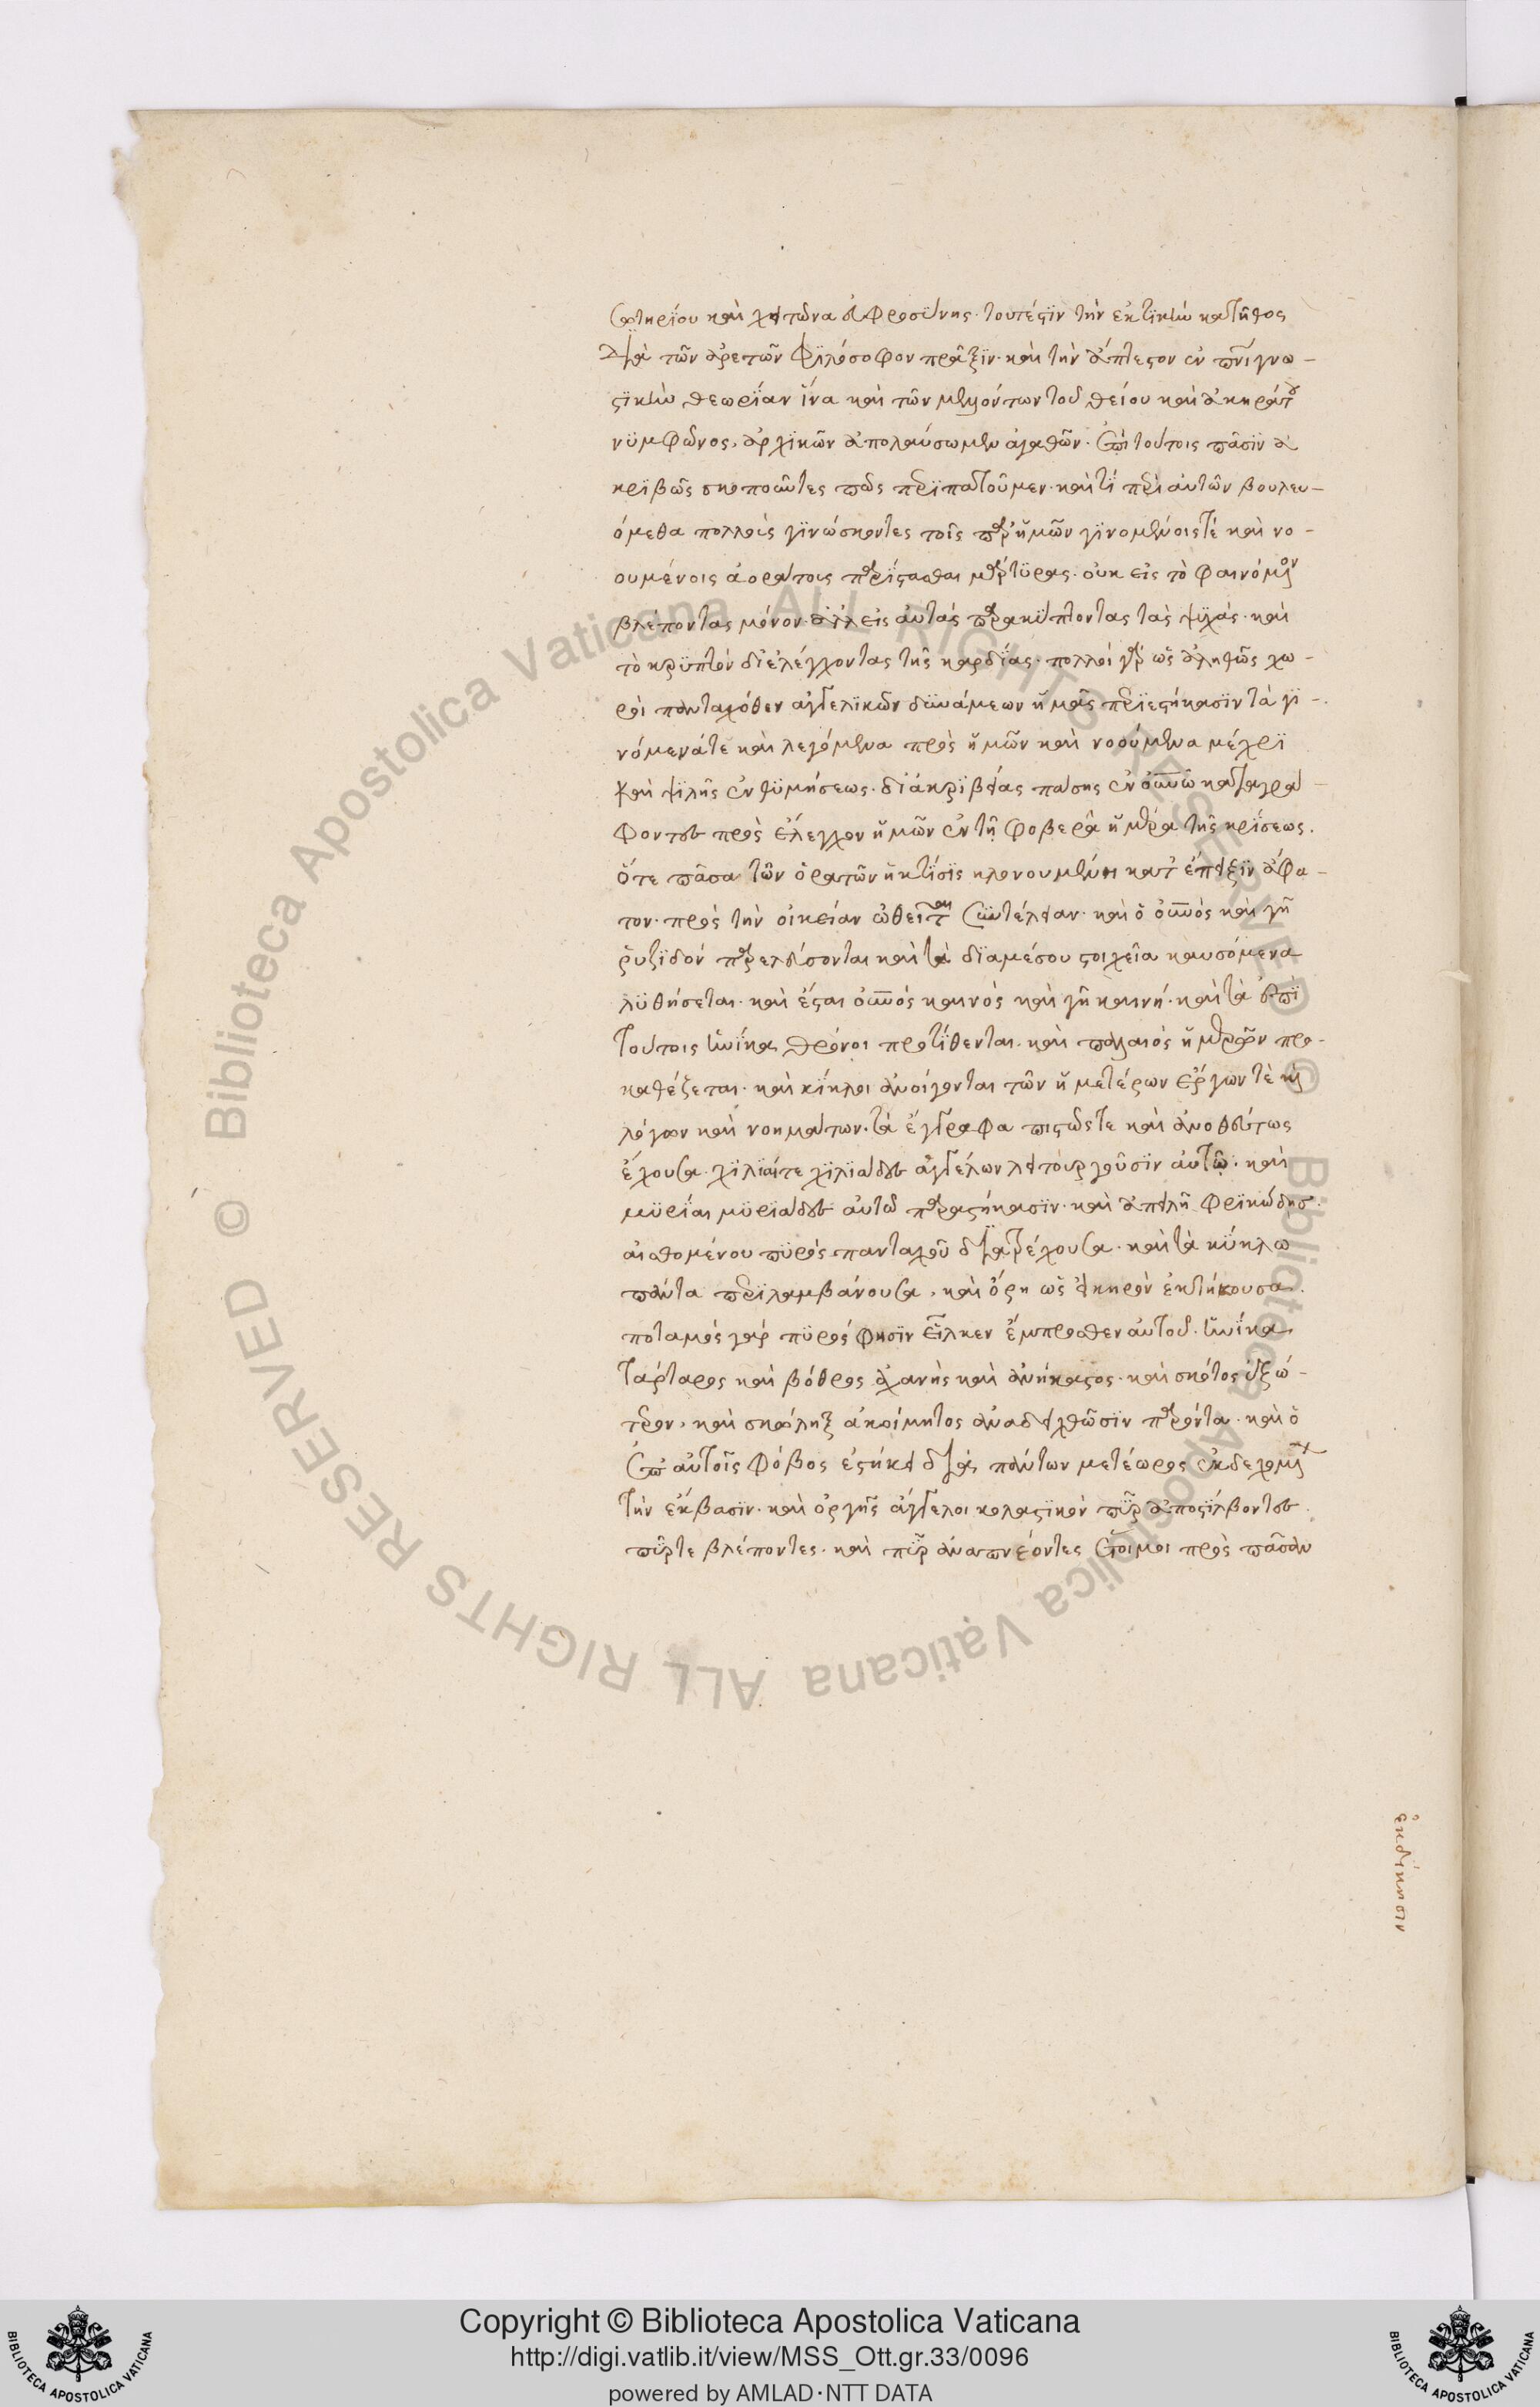 σωτηρίου καὶ χιτῶνα εὐφροσύνης· τουτέστιν τὴν ἑκτικὴν κατ' ἦθος
διὰ τῶν ἀρετῶν φιλόσοφον πρᾶξιν· καὶ τὴν ἄπτεστον ἐν πνι γνω-
στικὴν θεωρίαν ἵνα καὶ τῶν μενόντων τοῦ θείου καὶ ἀκηράτου
νυμφῶνος, ἀρχικῶν ἀπολαύσωμεν ἀγαθῶν. ἐπὶ τούτοις πᾶσιν ἀ
κριβῶς σκοποῦντες πῶς περιπατοῦμεν· καὶ τί περὶ αὐτῶν βουλευ-
όμεθα πολλοὶς γινώσκοντες τοῖς παρ' ἡμῶν γινομένοις τὲ καὶ νο-
ουμένοις ἀοράτοις παρίστασθαι μάρτυρας. οὐκ εἰς τὸ φαινόμενον
βλέποντας μόνον· ἀλλ' εἰς αὐτὰς παρακύπτοντας τὰς ψυχάς· καὶ
τὸ κρυπτὸν διελέγχοντας τῆς καρδίας· πολλοὶ γὰρ ὡς ἀληθῶς χω-
ροὶ πανταχόθεν ἀγγελικῶν δυνάμεων ἡμᾶς περιεστήκασιν τὰ γι-
νόμενάτε καὶ λεγόμενα πρὸς ἡμῶν καὶ νοούμενα μέχρι
καὶ ψιλῆς ἐνθυμήσεως· δι' ἀκριβείας πάσης ἐν οὐνῶ καταγρά-
φοντες πρὸς ἔλεγχον ἡμῶν ἐν τῇ φοβερᾷ ἡμέρα τῆς κρίσεως.
ὅτε πᾶσα τῶν ὁρατῶν ἡ κτίσις κλονουμένη κατ' ἔπειξιν ἄφα-
τον· πρὸς τὴν οἰκείαν ὠθεῖται συντέλειαν· καὶ ὁ οὐνὸς καὶ γῆ
ῥυζιδὸν παρελεύσονται καὶ τὰ διαμέσου στοιχεῖα καυσόμενα
λυθήσεται· καὶ ἔσται οὐνὸς καινὸς καὶ γῆ καινή· καὶ τὰ ἐπὶ
τούτοις ἡνίκα θρόνοι προτίθενται· καὶ παλαιὸς ἡμερῶν προ-
καθέζεται· καὶ κύκλοι ἀνοίγονται τῶν ἡμετέρων ἔργων τὲ καὶ
λόγων καὶ νοημάτων· τὰ ἔγγραφα πιστῶς τε καὶ ἀνοθεύτως
ἔχουσα· χίλιαί τε χιλιάδες ἀγγέλων λειτουργοῦσιν αὐτῷ· καὶ
μύριαι μυριάδες αὐτῶ παραστήκασιν· καὶ ἀπειλὴ φρικώδης
αἰθομένου πυρὸς πανταχοῦ διατρέχουσα· καὶ τὰ κύκλω
πάντα περιλαμβάνουσα, καὶ ὄρη ὡς κηρὸν ἐκτήκουσα.
ποταμὸς γάρ πυρός φησιν εἷλκεν ἔμπροσθεν αὐτοῦ. ἡνίκα
τάρταρος καὶ βόθρος ἀχανὴς καὶ ἀνήκαστος· καὶ σκότος ἐξώ-
τερον, καὶ σκώληξ ἀκοίμητος ἀναδειχθῶσιν παρόντα· καὶ ὁ
ἐπ' αὐτοῖς φόβος ἑστήκει διὰ πάντων μετέωρος ἐκδεχομένων
τὴν ἔκβασιν· καὶ ὀργῆς ἄγγελοι κολαστικὸν πῦρ ἀποστίλβοντες.
πῦρ τε βλέποντες· καὶ πῦρ ἀναπνέοντες ἕτοιμοι πρὸς πᾶσαν
ἐκδίκησιν
© Biblioteca Apostolica Vaticana ALL RIGHTS RESERVED © Biblioteca Apostolica Vaticana ALL RIGHTS RESERVED
Copyright © Biblioteca Apostolica Vaticana
http://digi.vatlib.it/view/MSS_Ott.gr.33/0096
powered by AMLAD·NTT DATA
BIBLIOTECA APOSTOLICA VATICANA
BIBLIOTECA APOSTOLICA VATICANA